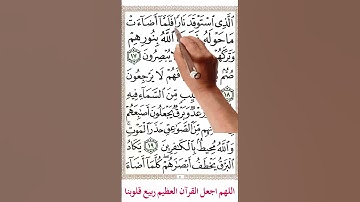 ٱلَّذِي ٱسْتَوْقَدَ نَارًا فَلَمَّآ أَضَآءَتْ
مَا حَوْلَهُۥ ٱللَّهُ بِنُورِهِمْ
وَتَرَكَهُمْ يُبْصِرُونَ ١٧
صُمٌّۢ فَهُمْ لَا يَرْجِعُونَ
مِّنَ ٱلسَّمَآءِ فِيهِ
وَبَرْقٌ يَجْعَلُونَ أَصَٰبِعَهُمْ
مِّنَ ٱلصَّوَٰعِقِ حَذَرَ ٱلْمَوْتِ
وَٱللَّهُ مُحِيطٌۢ بِٱلْكَٰفِرِينَ ١٩ يَكَادُ
ٱلْبَرْقُ يَخْطَفُ أَبْصَٰرَهُمْ كُلَّمَآ أَضَآءَ
اللهم اجعل القرآن العظيم ربيع قلوبنا